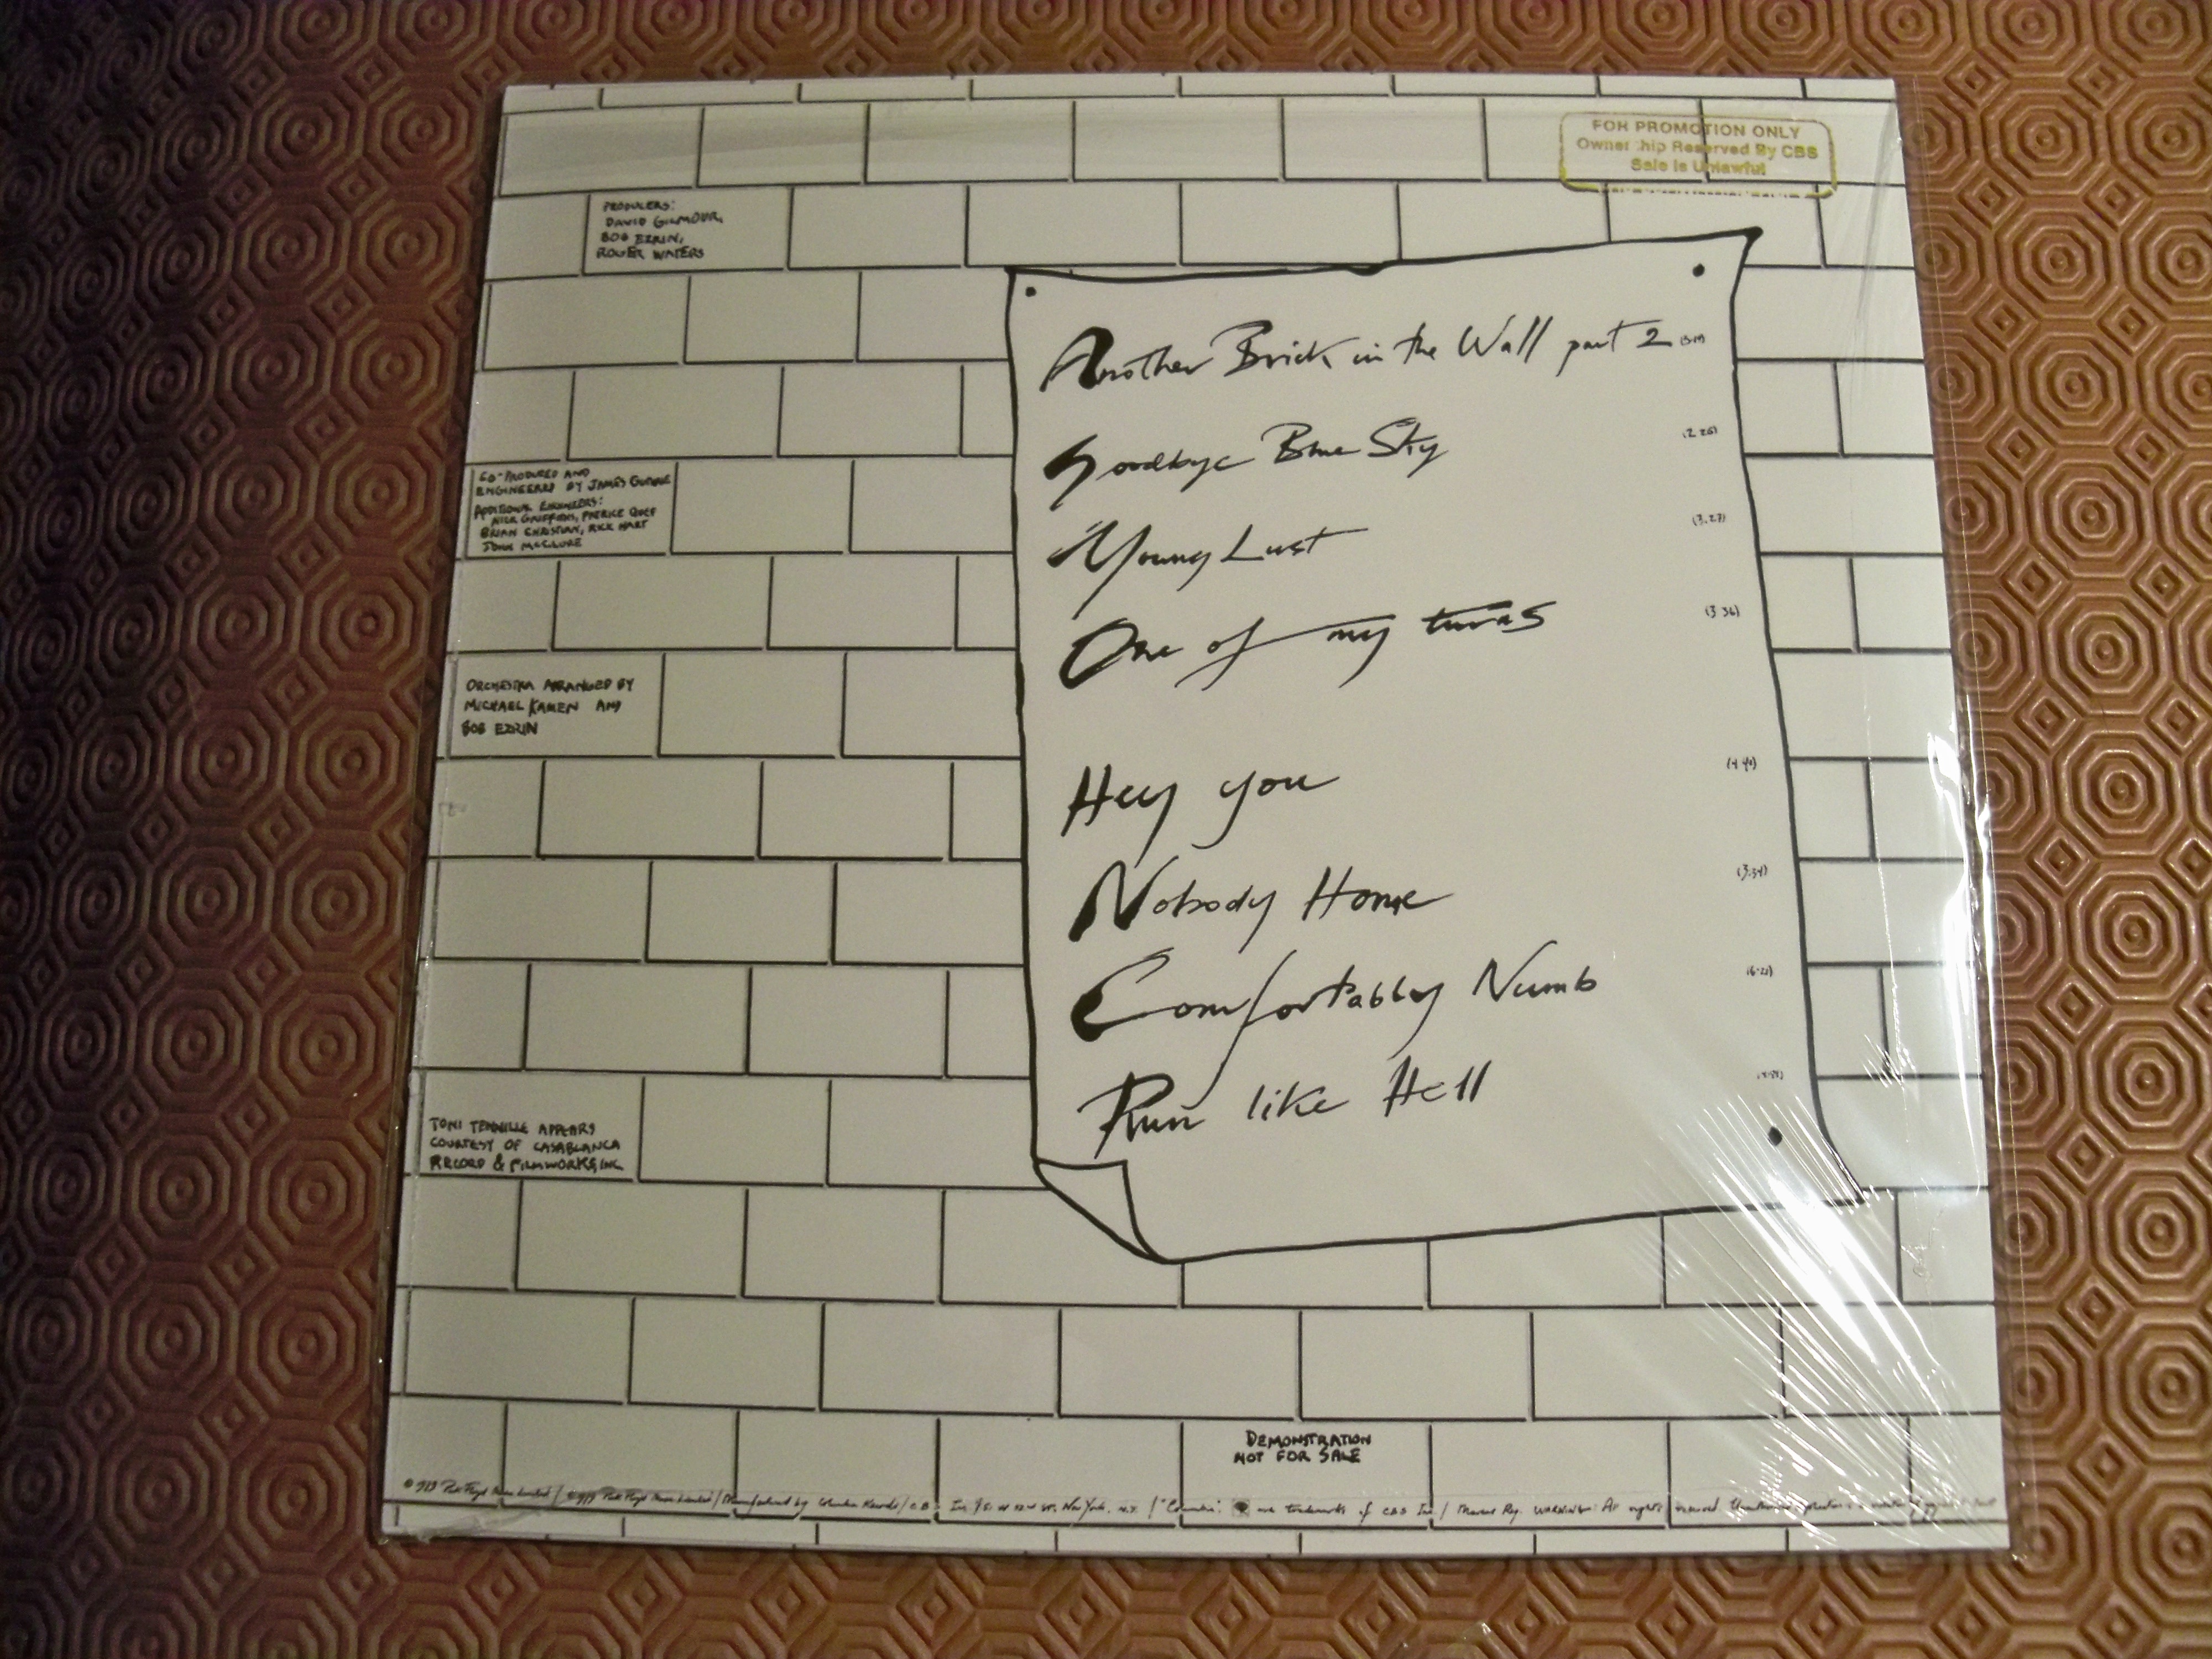 FOR PROMOTION ONLY
Ownership Reserved By CBS
Sale is Unlawful
PRODUCERS:
DAVID GILMOUR,
BOB EZRIN,
ROGER WATERS
Another Brick in the Wall part 2
Goodbye Blue Sky (2.26)
Young Lust (3.27)
One of my turns (3.36)
Hey you
Nobody Home (3.24)
Comfortably Numb
Run like Hell
CO-PRODUCED AND
ENGINEERED BY JAMES GUTHRIE
ADDITIONAL ENGINEERS:
NICK GRIFFITHS, PATRICE QUEF
BRIAN CHRISTIAN, RICK HART
JOHN McCLURE
ORCHESTRA ARRANGED BY
MICHAEL KAMEN AND
BOB EZRIN
TONI TENNILLE APPEARS
COURTESY OF CASABLANCA
RECORD & FILMWORKS, INC.
DEMONSTRATION
NOT FOR SALE
Pink Floyd Music Limited / Pink Floyd Music Limited / Manufactured by Columbia Records / New York, N.Y. / "Columbia" are trademarks of CBS Inc / WARNING: All rights reserved